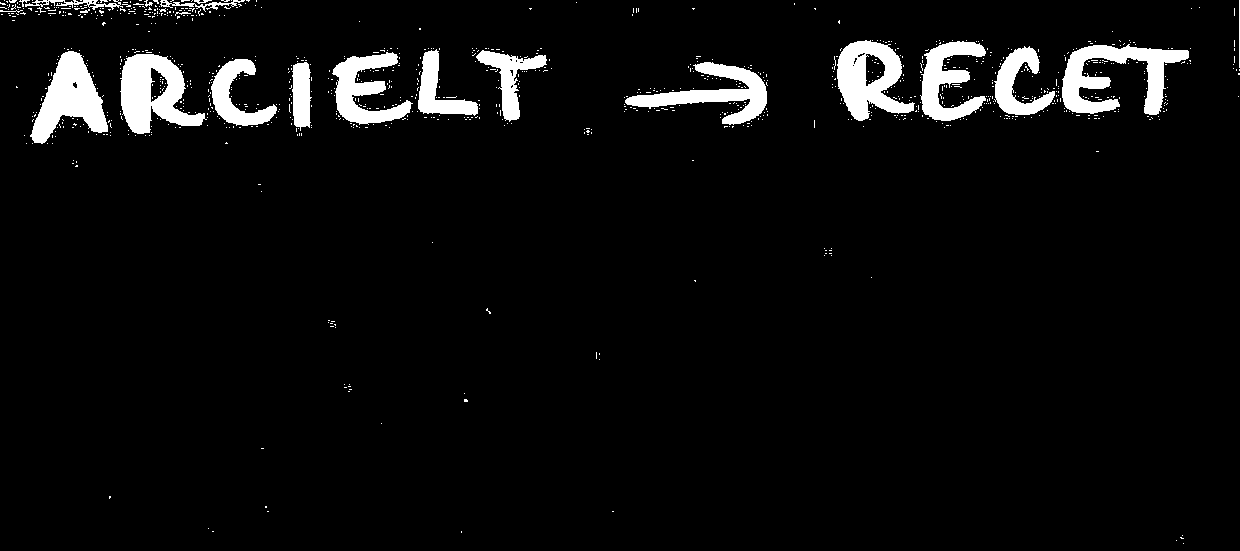 ARCIELT → RECET